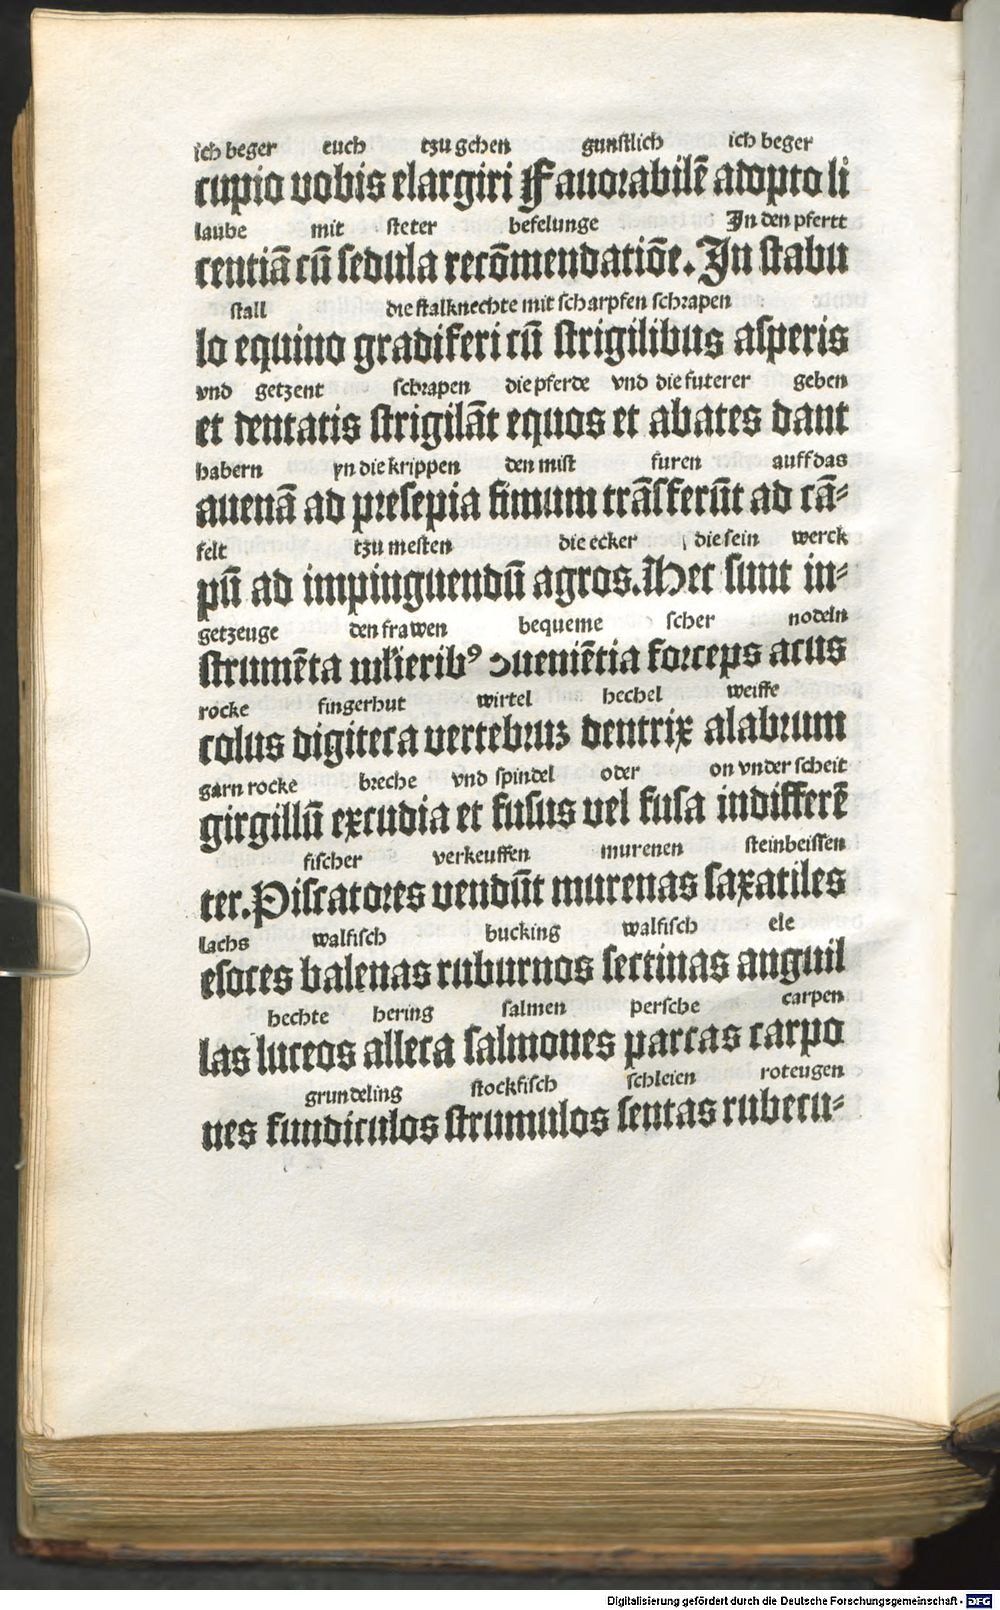 ich beger euch tzu geben gunstlich ich beger
cupio vobis elargiri Fauorabilē adopto li
laube mit steter befelunge In den pfertt
centiā cū sedula recōmendatiōe. In stabu
stall die stalknechte mit scharpfen schrapen
lo equino gradiferi cū strigilibus asperis
vnd getzent schrapen die pferde vnd die futerer geben
et dentatis strigilāt equos et abates dant
habern yn die krippen den mist furen auff das
auenā ad presepia fimum trāsferūt ad cā⸗
felt tzu mesten die ecker die sein werck
pū ad impinguendū agros. Hec sunt in⸗
getzeuge den frawen bequeme scher nodeln
strumēta mlierib⁹ ↄueniētia forceps acus
rocke fingerhut wirtel hechel weiffe
colus digiteca vertebruꝫ dentrix alabrum
garn rocke breche vnd spindel oder on vnder scheit
girgillū excudia et fusus vel fusa indifferē
fischer verkeuffen murenen steinbeissen
ter. Piscatores vendūt murenas saxatiles
lachs walfisch bucking walfisch ele
esoces balenas ruburnos sectinas anguil
hechte hering salmen persche carpen
las luceos alleca salmones parcas carpo
grundeling stockfisch schleien roteugen
nes fundiculos strumulos sentas rubecu⸗
Digitalisierung gefördert durch die Deutsche Forschungsgemeinschaft - DFG